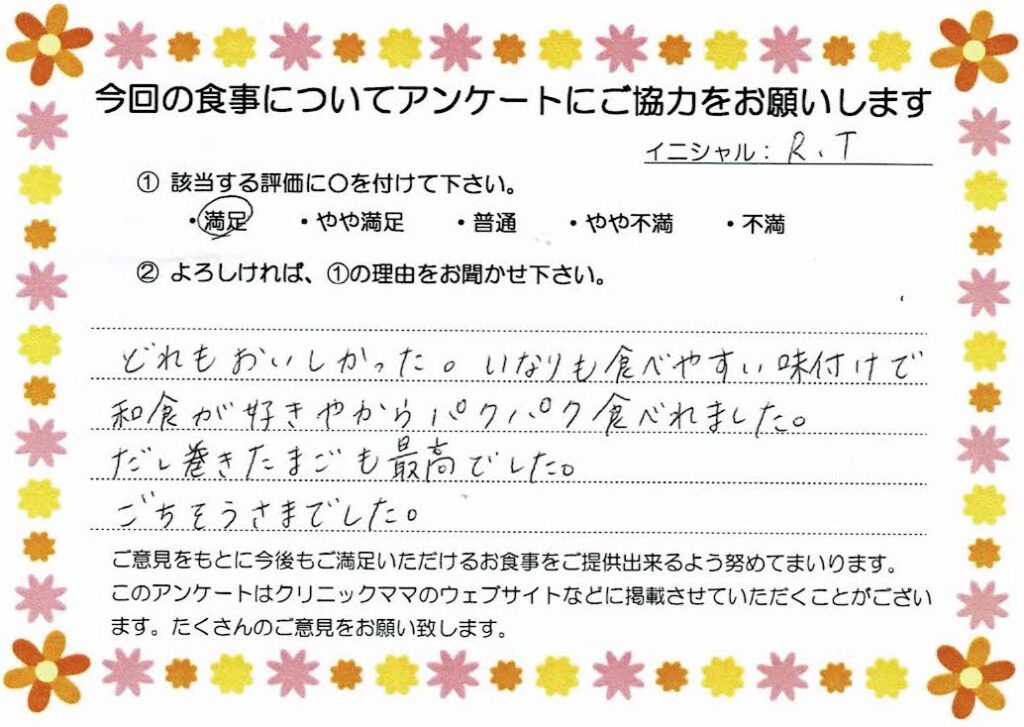 今回の食事についてアンケートにご協力をお願いします
イニシャル: R、T
① 該当する評価に〇を付けて下さい。
・満足 ・やや満足 ・普通 ・やや不満 ・不満
② よろしければ、①の理由をお聞かせ下さい。
どれもおいしかった。いなりも食べやすい味付けで
和食が好きやからパクパク食べれました。
だし巻きたまごも最高でした。
ごちそうさまでした。
ご意見をもとに今後もご満足いただけるお食事をご提供出来るよう努めてまいります。
このアンケートはクリニックママのウェブサイトなどに掲載させていただくことがござい
ます。たくさんのご意見をお願い致します。